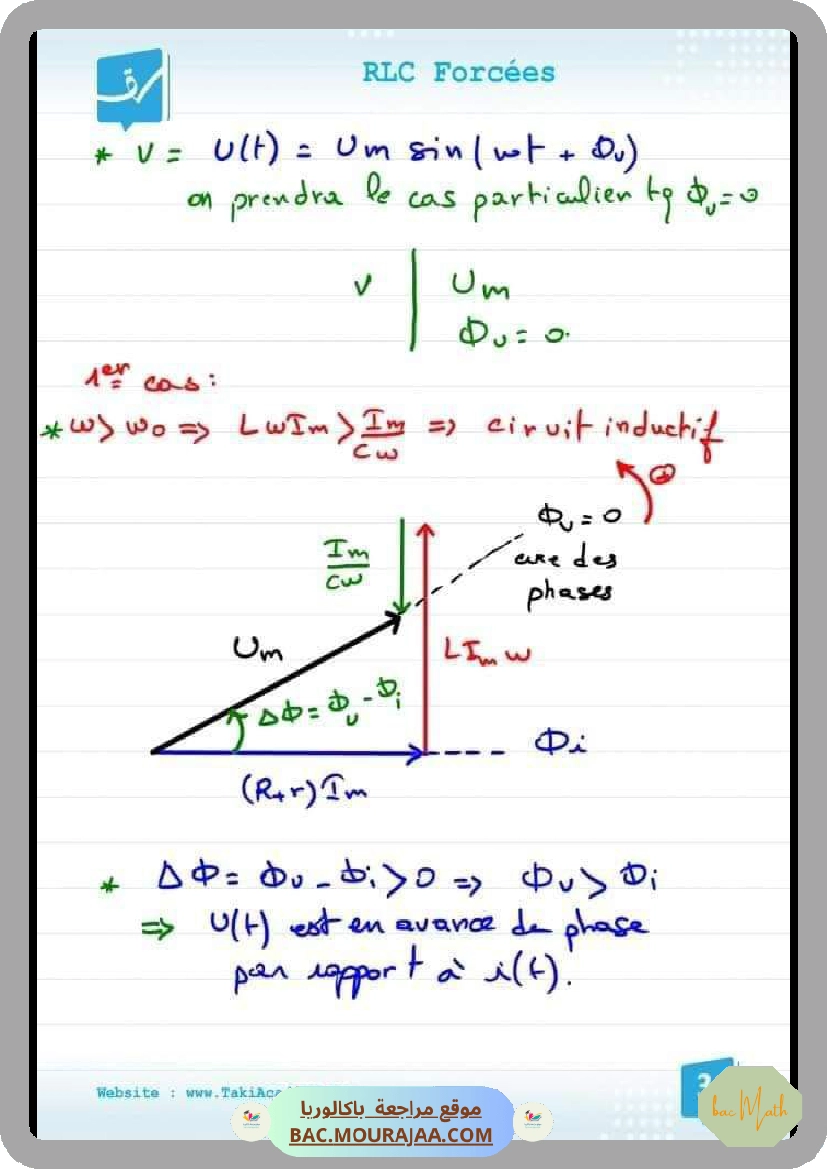 RLC Forcées
* V = U(t) = Um sin(wt + Φu)
on prendra le cas particulier tq Φu = 0
V | Um
Φu = 0.
1er cas :
* w > w0 => LwIm > Im/Cw => ciruit inductif
+
Φu = 0
axe des
phases
Im/Cw
Um
LIm w
ΔΦ = Φu - Φi
Φi
(R+r) Im
* ΔΦ = Φu - Φi > 0 => Φu > Φi
=> U(t) est en avance de phase
par rapport à i(t).
Website : www.TakiAc
موقع مراجعة باكالوريا
BAC.MOURAJAA.COM
bac Math